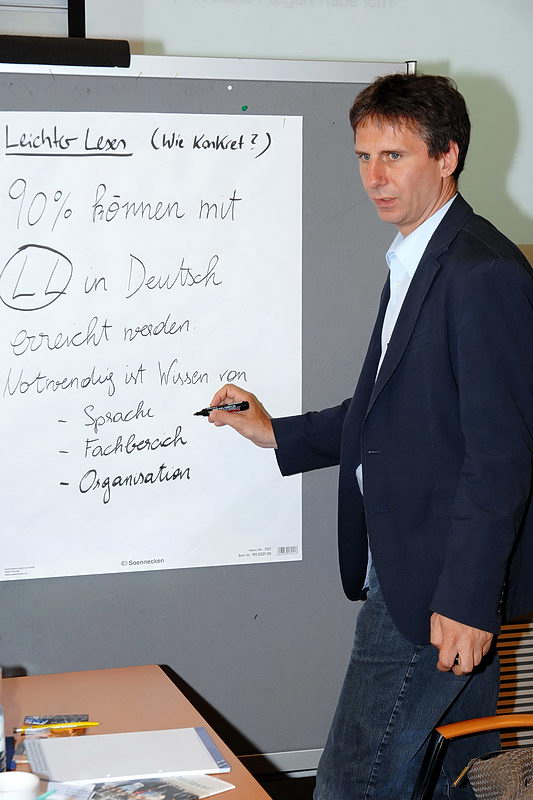 Fragen habe ich?
Leichter Lesen (Wie konkret?)
90% können mit
LL in Deutsch
erreicht werden.
Notwendig ist Wissen von
- Sprache
- Fachbereich
- Organisation
Soennecken